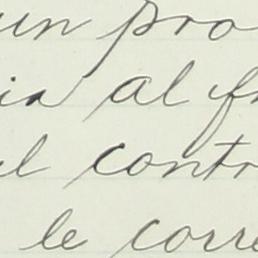 un pro
ia al fr
al contr
le corre